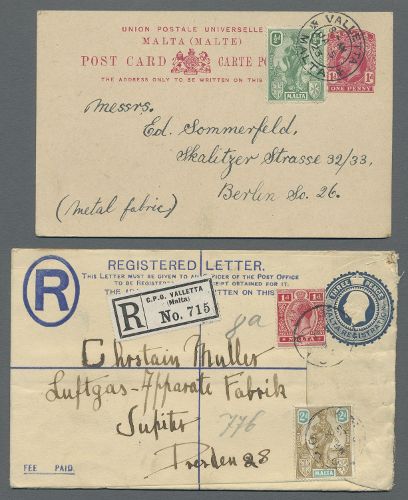 UNION POSTALE UNIVERSELLE
MALTA (MALTE)
POST CARD
CARTE PO
THE ADDRESS ONLY TO BE WRITTEN ON THIS
VALLETTA
MALTA
½d
MALTA
1d
ONE PENNY
Messrs.
Ed. Sommerfeld,
Skalitzer Strasse 32/33,
(metal fabric)
Berlin So. 26.
REGISTERED LETTER.
THIS LETTER MUST BE GIVEN TO AN OFFICER OF THE POST OFFICE
TO BE REGISTERED AND A RECEIPT OBTAINED FOR IT.
THE WRITTEN ON THIS
R
R
G.P.O. VALLETTA
(Malta)
No. 715
1d
MALTA
THREE PENCE
MALTA REGISTRATION
8a
Chostain Muller
Luftgas-Apparate Fabrik
Jupiter
776
Dresden 28
2d
2d
MALTA
FEE PAID.